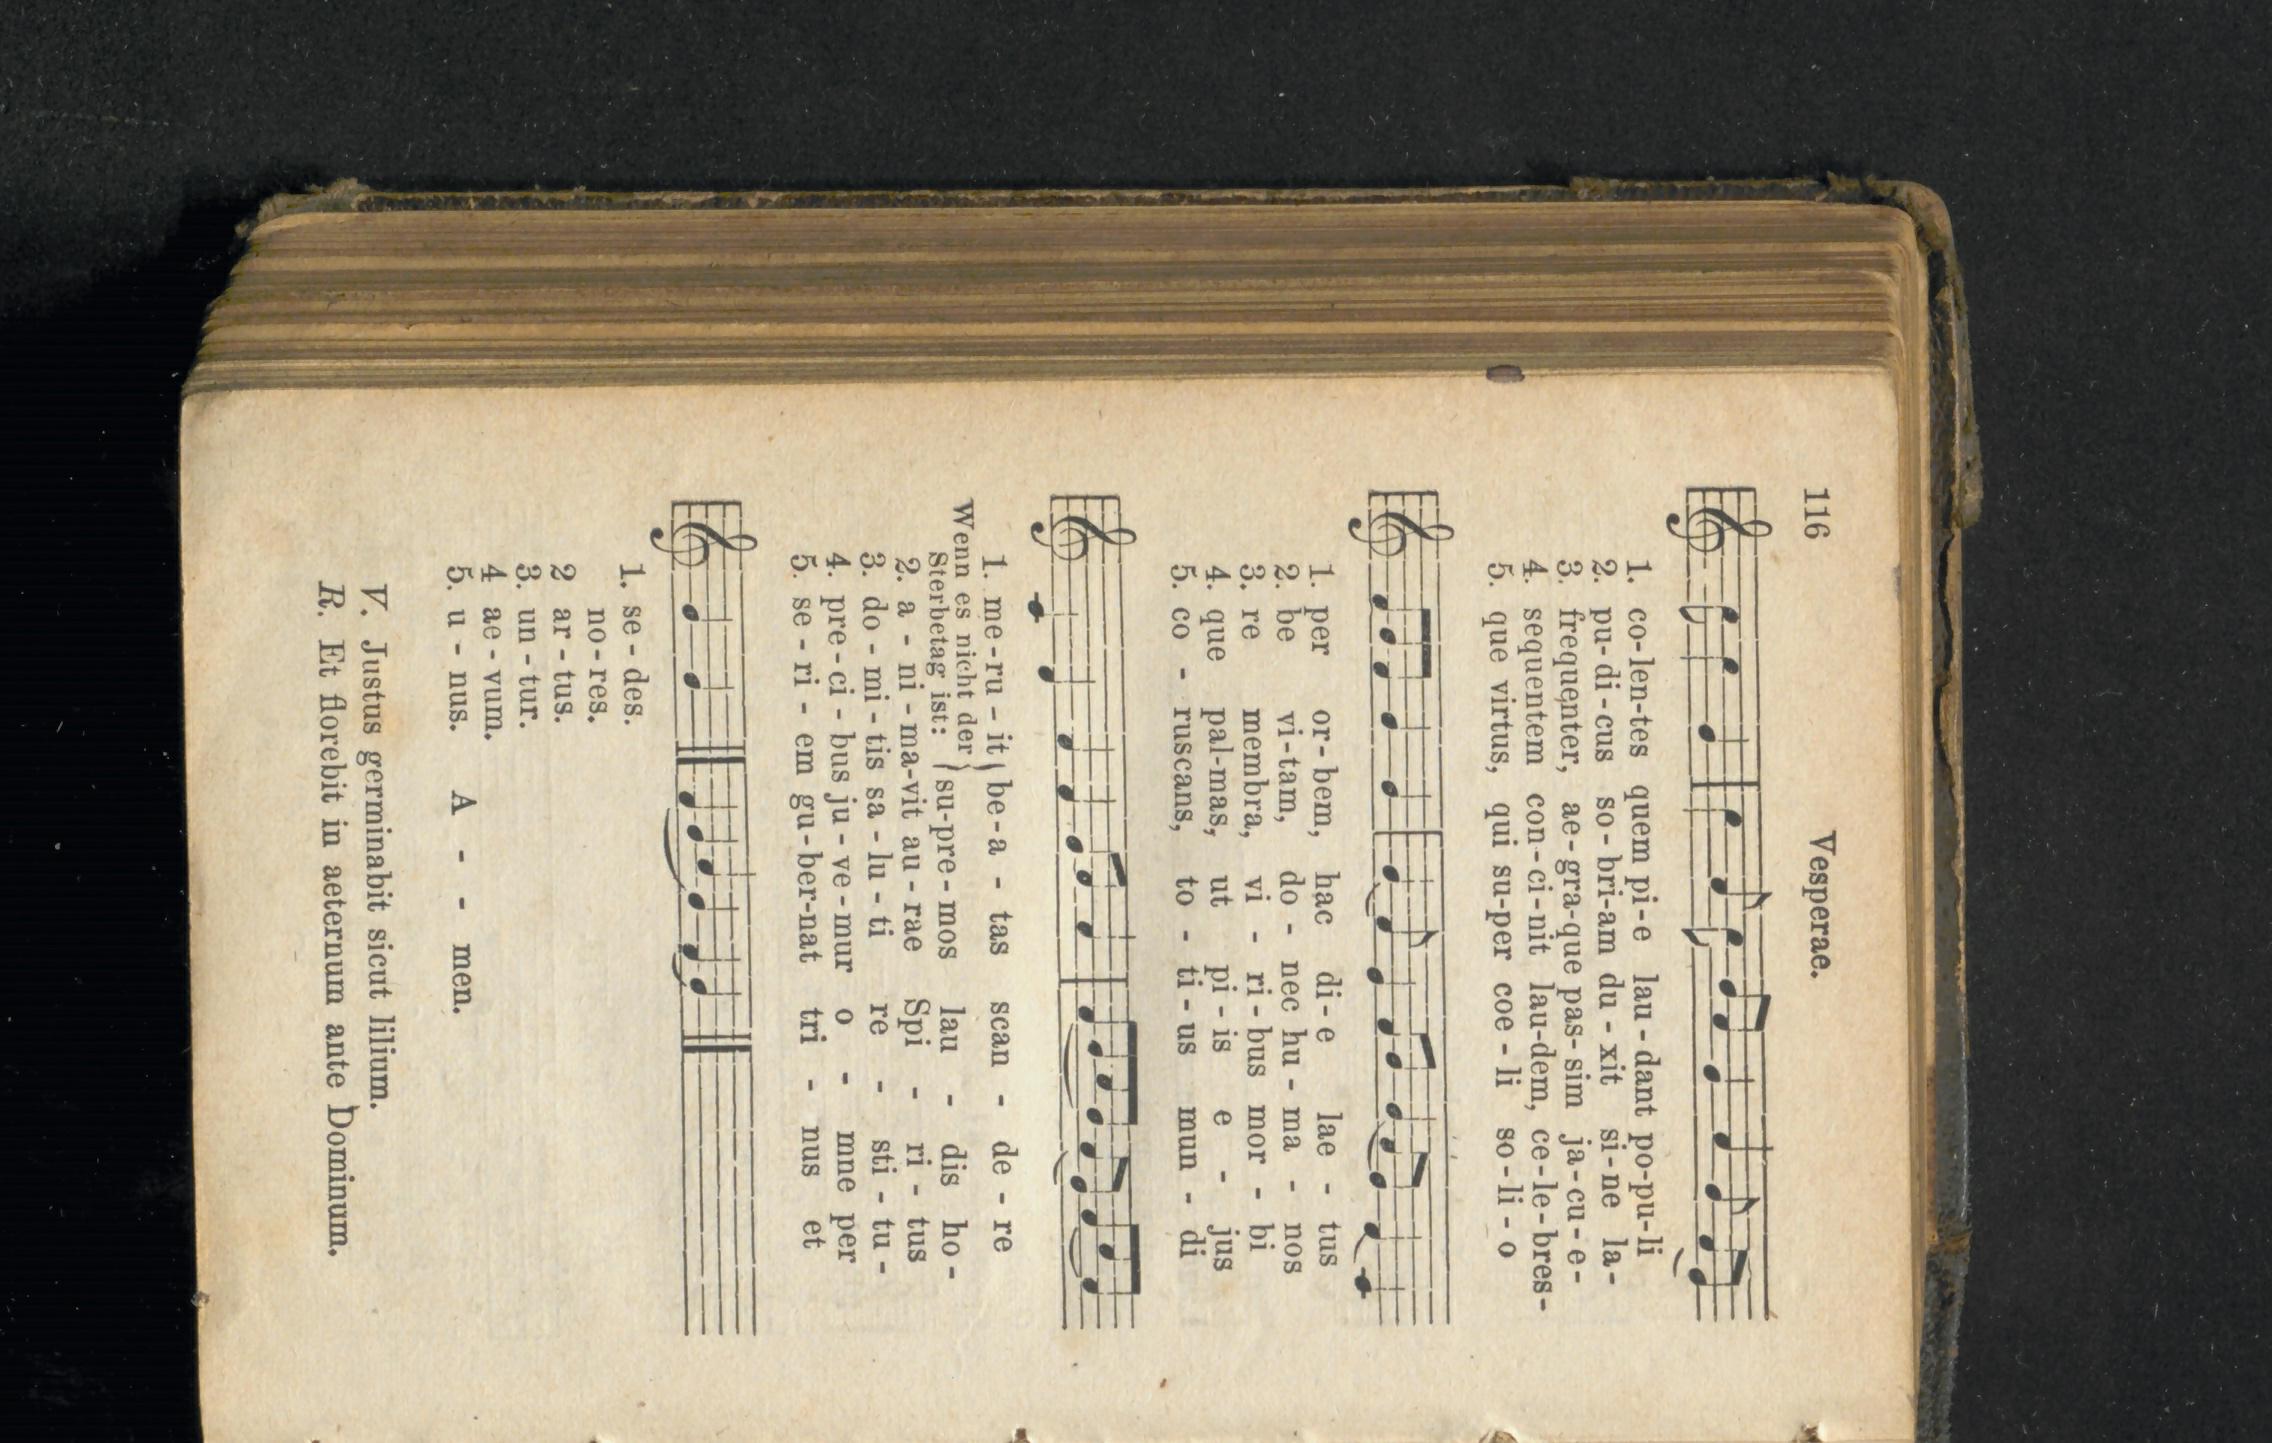 116
Vesperae.
1. co-len-tes quem pi-e lau-dant po-pu-li
2. pu-di-cus so-bri-am du-xit si-ne la-
3. frequenter, ae-gra-que pas-sim ja-cu-e-
4. sequentem con-ci-nit lau-dem, ce-le-bres-
5. que virtus, qui su-per coe-li so-li-o
1. per or-bem, hac di-e lae - tus
2. be vi-tam, do - nec hu-ma - nos
3. re membra, vi - ri-bus mor - bi
4. que pal-mas, ut pi-is e - jus
5. co - ruscans, to - ti-us mun - di
1. me-ru-it be-a - tas scan - de-re
Wenn es nicht der
Sterbetag ist: su-pre-mos lau - dis ho-
2. a - ni-ma-vit au-rae Spi - ri-tus
3. do-mi-tis sa-lu-ti re - sti-tu-
4. pre-ci-bus ju-ve-mur o - mne per
5. se-ri-em gu-ber-nat tri - nus et
1. se-des.
no-res.
2 ar-tus.
3. un-tur.
4 ae-vum.
5. u-nus. A - - men.
V. Justus germinabit sicut lilium.
R. Et florebit in aeternum ante Dominum.